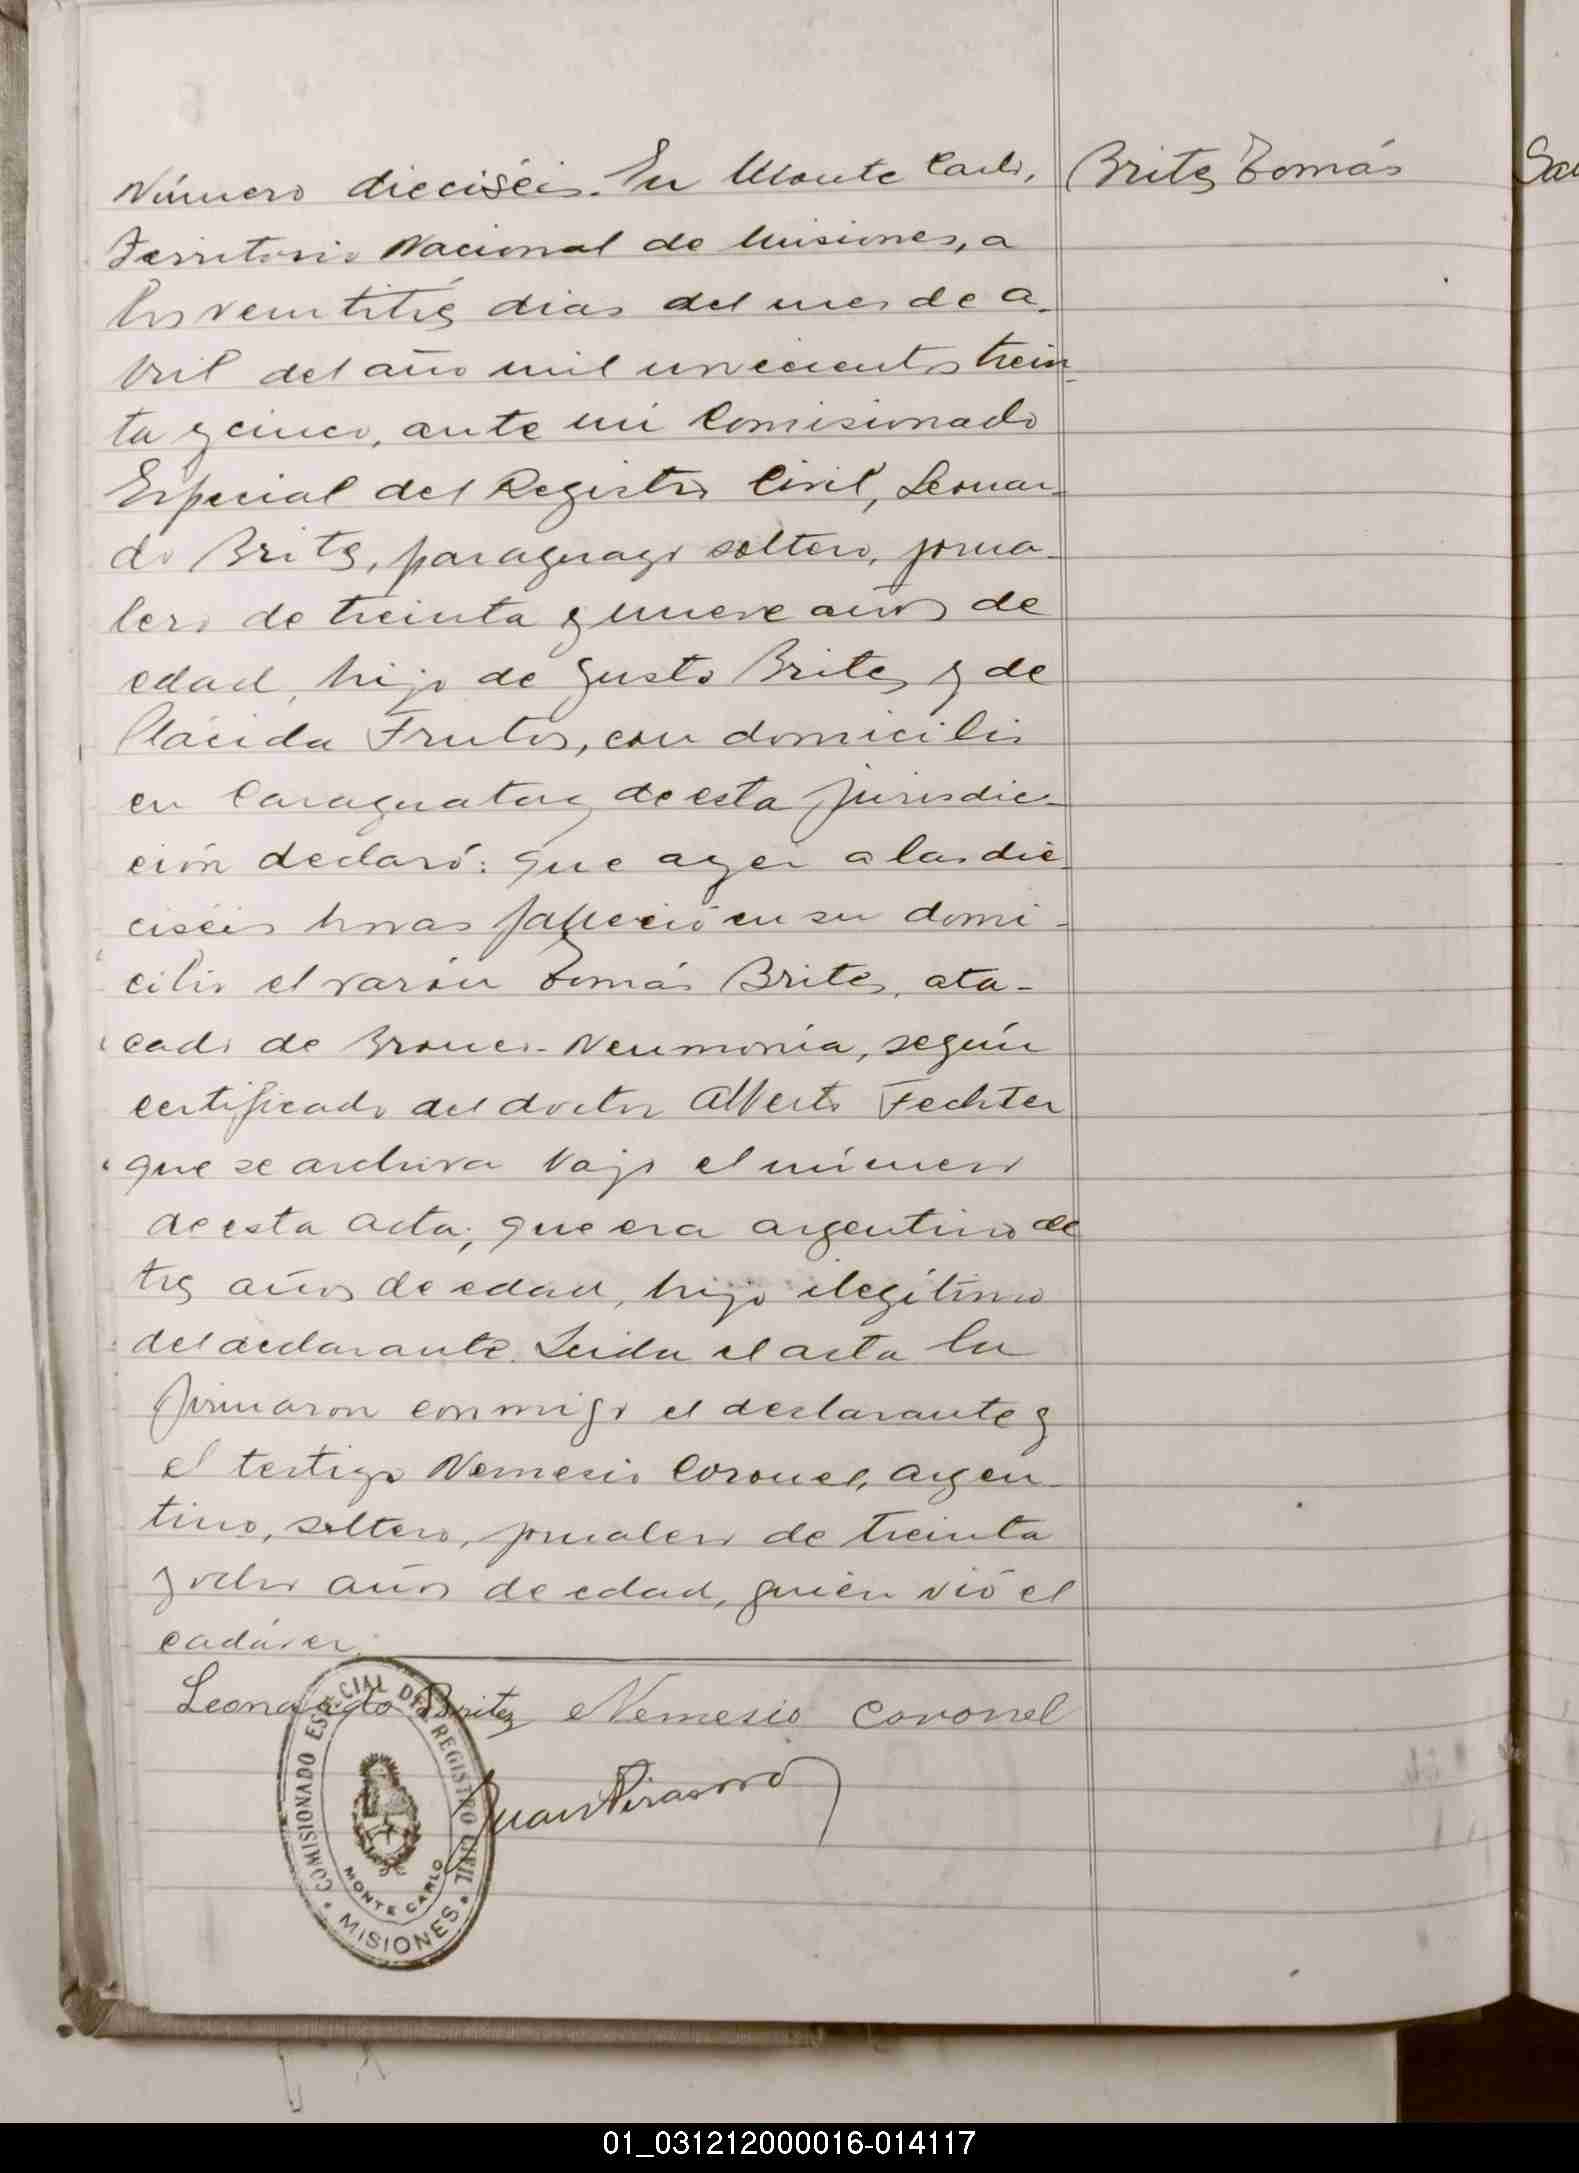 Número dieciséis. En Monte Carlo,
Territorio Nacional de Misiones, a
los veintitrés dias del mes de a-
bril del año mil novecientos trein-
ta y cinco, ante mi Comisionado
Especial del Registro Civil, Leonar-
do Brites, paraguayo soltero, jorna-
lero de treinta y nueve años de
edad, hijo de Justo Brites y de
Plácida Frutos, con domicilio
en Caraguatay de esta jurisdic-
ción declaró: que ayer a las die-
ciséis horas falleció en su domi-
cilio el varón Tomás Brites, ata-
cado de Bronco-Neumonía, según
certificado del doctor Alberto Fechter
que se archiva bajo el número
de esta acta; que era argentino de
tres años de edad, hijo ilegítimo
del declarante. Leida el acta la
firmaron conmigo el declarante y
el testigo Nemesio Coronel, argen-
tino, soltero, jornalero de treinta
y ocho años de edad, quién vió el
cadáver.
Leonardo Britez Nemesio Coronel
Juan
COMISIONADO ESPECIAL DEL REGISTRO CIVIL
MONTE CARLO
MISIONES
Brites Tomás
01_031212000016-014117